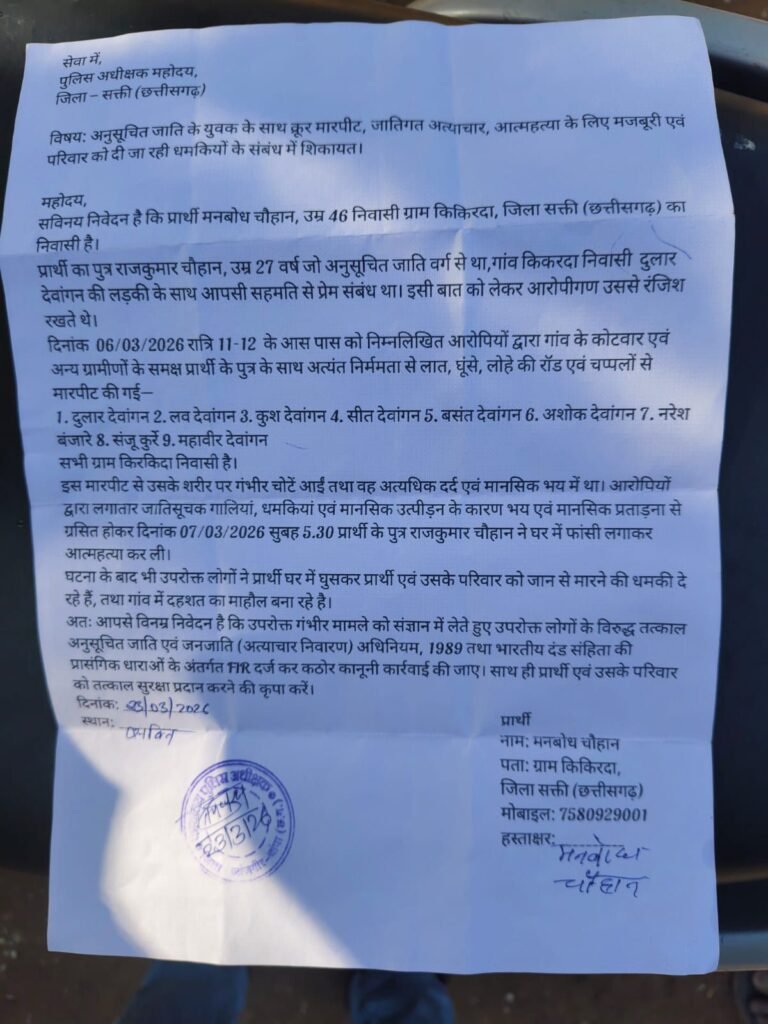 सेवा में,
पुलिस अधीक्षक महोदय,
जिला – सक्ती (छत्तीसगढ़)
विषय: अनुसूचित जाति के युवक के साथ क्रूर मारपीट, जातिगत अत्याचार, आत्महत्या के लिए मजबूरी एवं
परिवार को दी जा रही धमकियों के संबंध में शिकायत।
महोदय,
सविनय निवेदन है कि प्रार्थी मनबोध चौहान, उम्र 46 निवासी ग्राम किकिरदा, जिला सक्ती (छत्तीसगढ़) का
निवासी है।
प्रार्थी का पुत्र राजकुमार चौहान, उम्र 27 वर्ष जो अनुसूचित जाति वर्ग से था,गांव किकरदा निवासी दुलार
देवांगन की लड़की के साथ आपसी सहमति से प्रेम संबंध था। इसी बात को लेकर आरोपीगण उससे रंजिश
रखते थे।
दिनांक 06/03/2026 रात्रि 11-12 के आस पास को निम्नलिखित आरोपियों द्वारा गांव के कोटवार एवं
अन्य ग्रामीणों के समक्ष प्रार्थी के पुत्र के साथ अत्यंत निर्ममता से लात, घूंसे, लोहे की रॉड एवं चप्पलों से
मारपीट की गई—
1. दुलार देवांगन 2. लव देवांगन 3. कुश देवांगन 4. सीत देवांगन 5. बसंत देवांगन 6. अशोक देवांगन 7. नरेश
बंजारे 8. संजू कुर्रे 9. महावीर देवांगन
सभी ग्राम किरकिदा निवासी है।
इस मारपीट से उसके शरीर पर गंभीर चोटें आईं तथा वह अत्यधिक दर्द एवं मानसिक भय में था। आरोपियों
द्वारा लगातार जातिसूचक गालियां, धमकियां एवं मानसिक उत्पीड़न के कारण भय एवं मानसिक प्रताड़ना से
ग्रसित होकर दिनांक 07/03/2026 सुबह 5.30 प्रार्थी के पुत्र राजकुमार चौहान ने घर में फांसी लगाकर
आत्महत्या कर ली।
घटना के बाद भी उपरोक्त लोगों ने प्रार्थी घर में घुसकर प्रार्थी एवं उसके परिवार को जान से मारने की धमकी दे
रहे हैं, तथा गांव में दहशत का माहौल बना रहे है।
अतः आपसे विनम्र निवेदन है कि उपरोक्त गंभीर मामले को संज्ञान में लेते हुए उपरोक्त लोगों के विरुद्ध तत्काल
अनुसूचित जाति एवं जनजाति (अत्याचार निवारण) अधिनियम, 1989 तथा भारतीय दंड संहिता की
प्रासंगिक धाराओं के अंतर्गत FIR दर्ज कर कठोर कानूनी कार्रवाई की जाए। साथ ही प्रार्थी एवं उसके परिवार
को तत्काल सुरक्षा प्रदान करने की कृपा करें।
दिनांक: 23/03/2026
स्थान:
प्रार्थी
नाम: मनबोध चौहान
पता: ग्राम किकिरदा,
जिला सक्ती (छत्तीसगढ़)
मोबाइल: 7580929001
हस्ताक्षर:
मनबोध
चौहान
पुलिस अधीक्षक
23/3/26